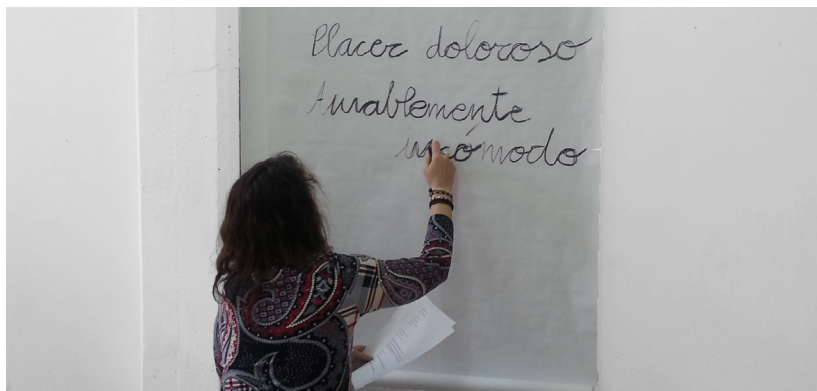 Placer doloroso
Amablemente
incómodo